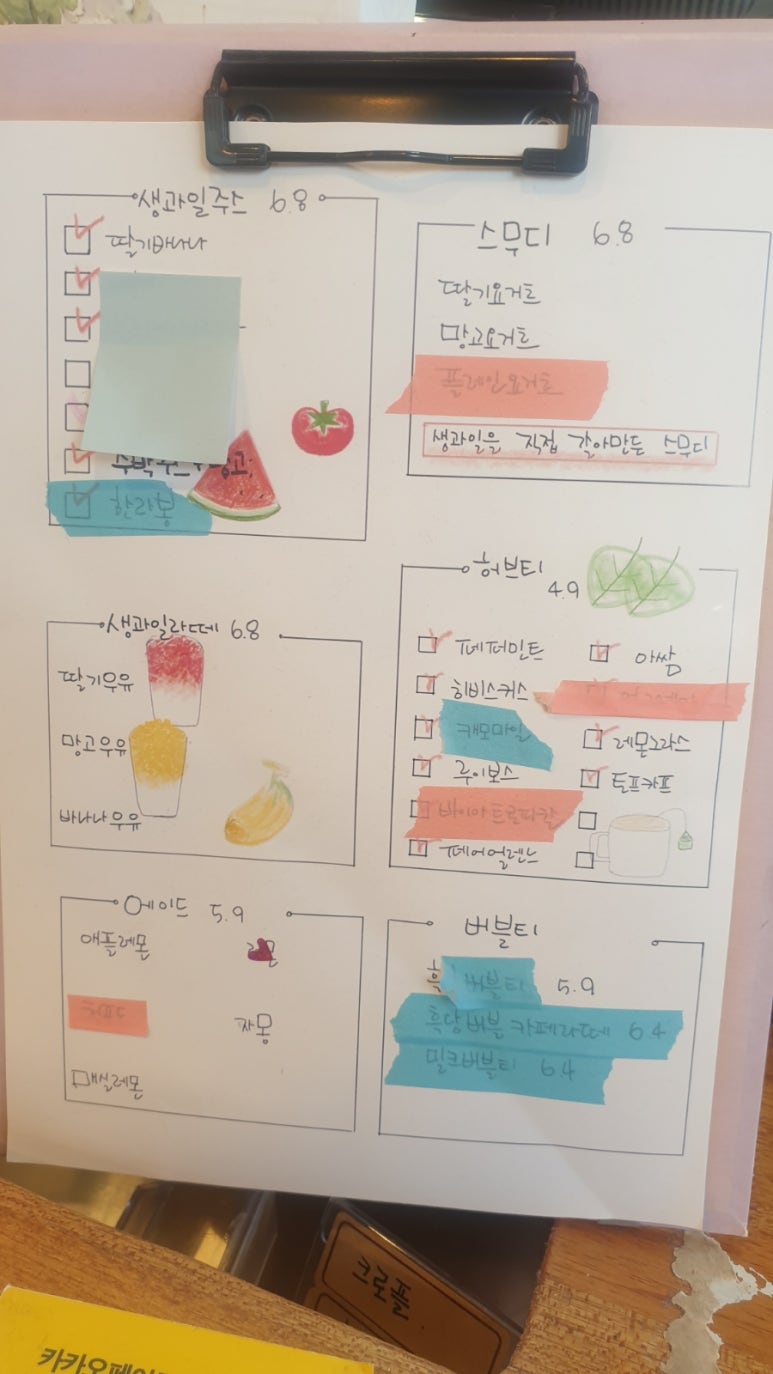 생과일주스 6.8
딸기바나나
한라봉
스무디 6.8
딸기요거트
망고요거트
플레인요거트
생과일을 직접 갈아만든 스무디
생과일라떼 6.8
딸기우유
망고우유
바나나우유
허브티
4.9
페퍼민트
아쌈
히비스커스
캐모마일
레몬그라스
루이보스
토프카프
에이드 5.9
애플레몬
자몽
매실레몬
버블티
버블티 5.9
흑당버블 카페라떼 6.4
밀크버블티 6.4
크로플